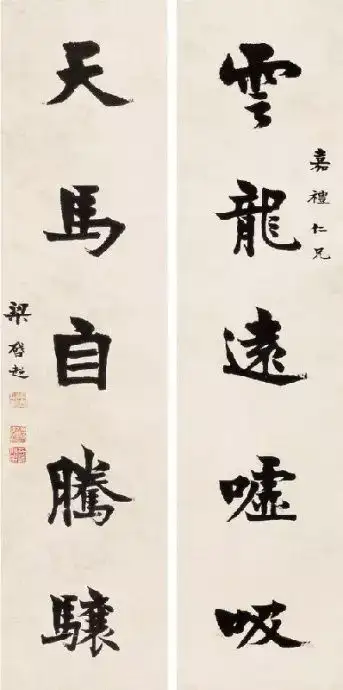 雲龍遠噓吸
嘉禮仁兄
天馬自騰驤
梁啓超